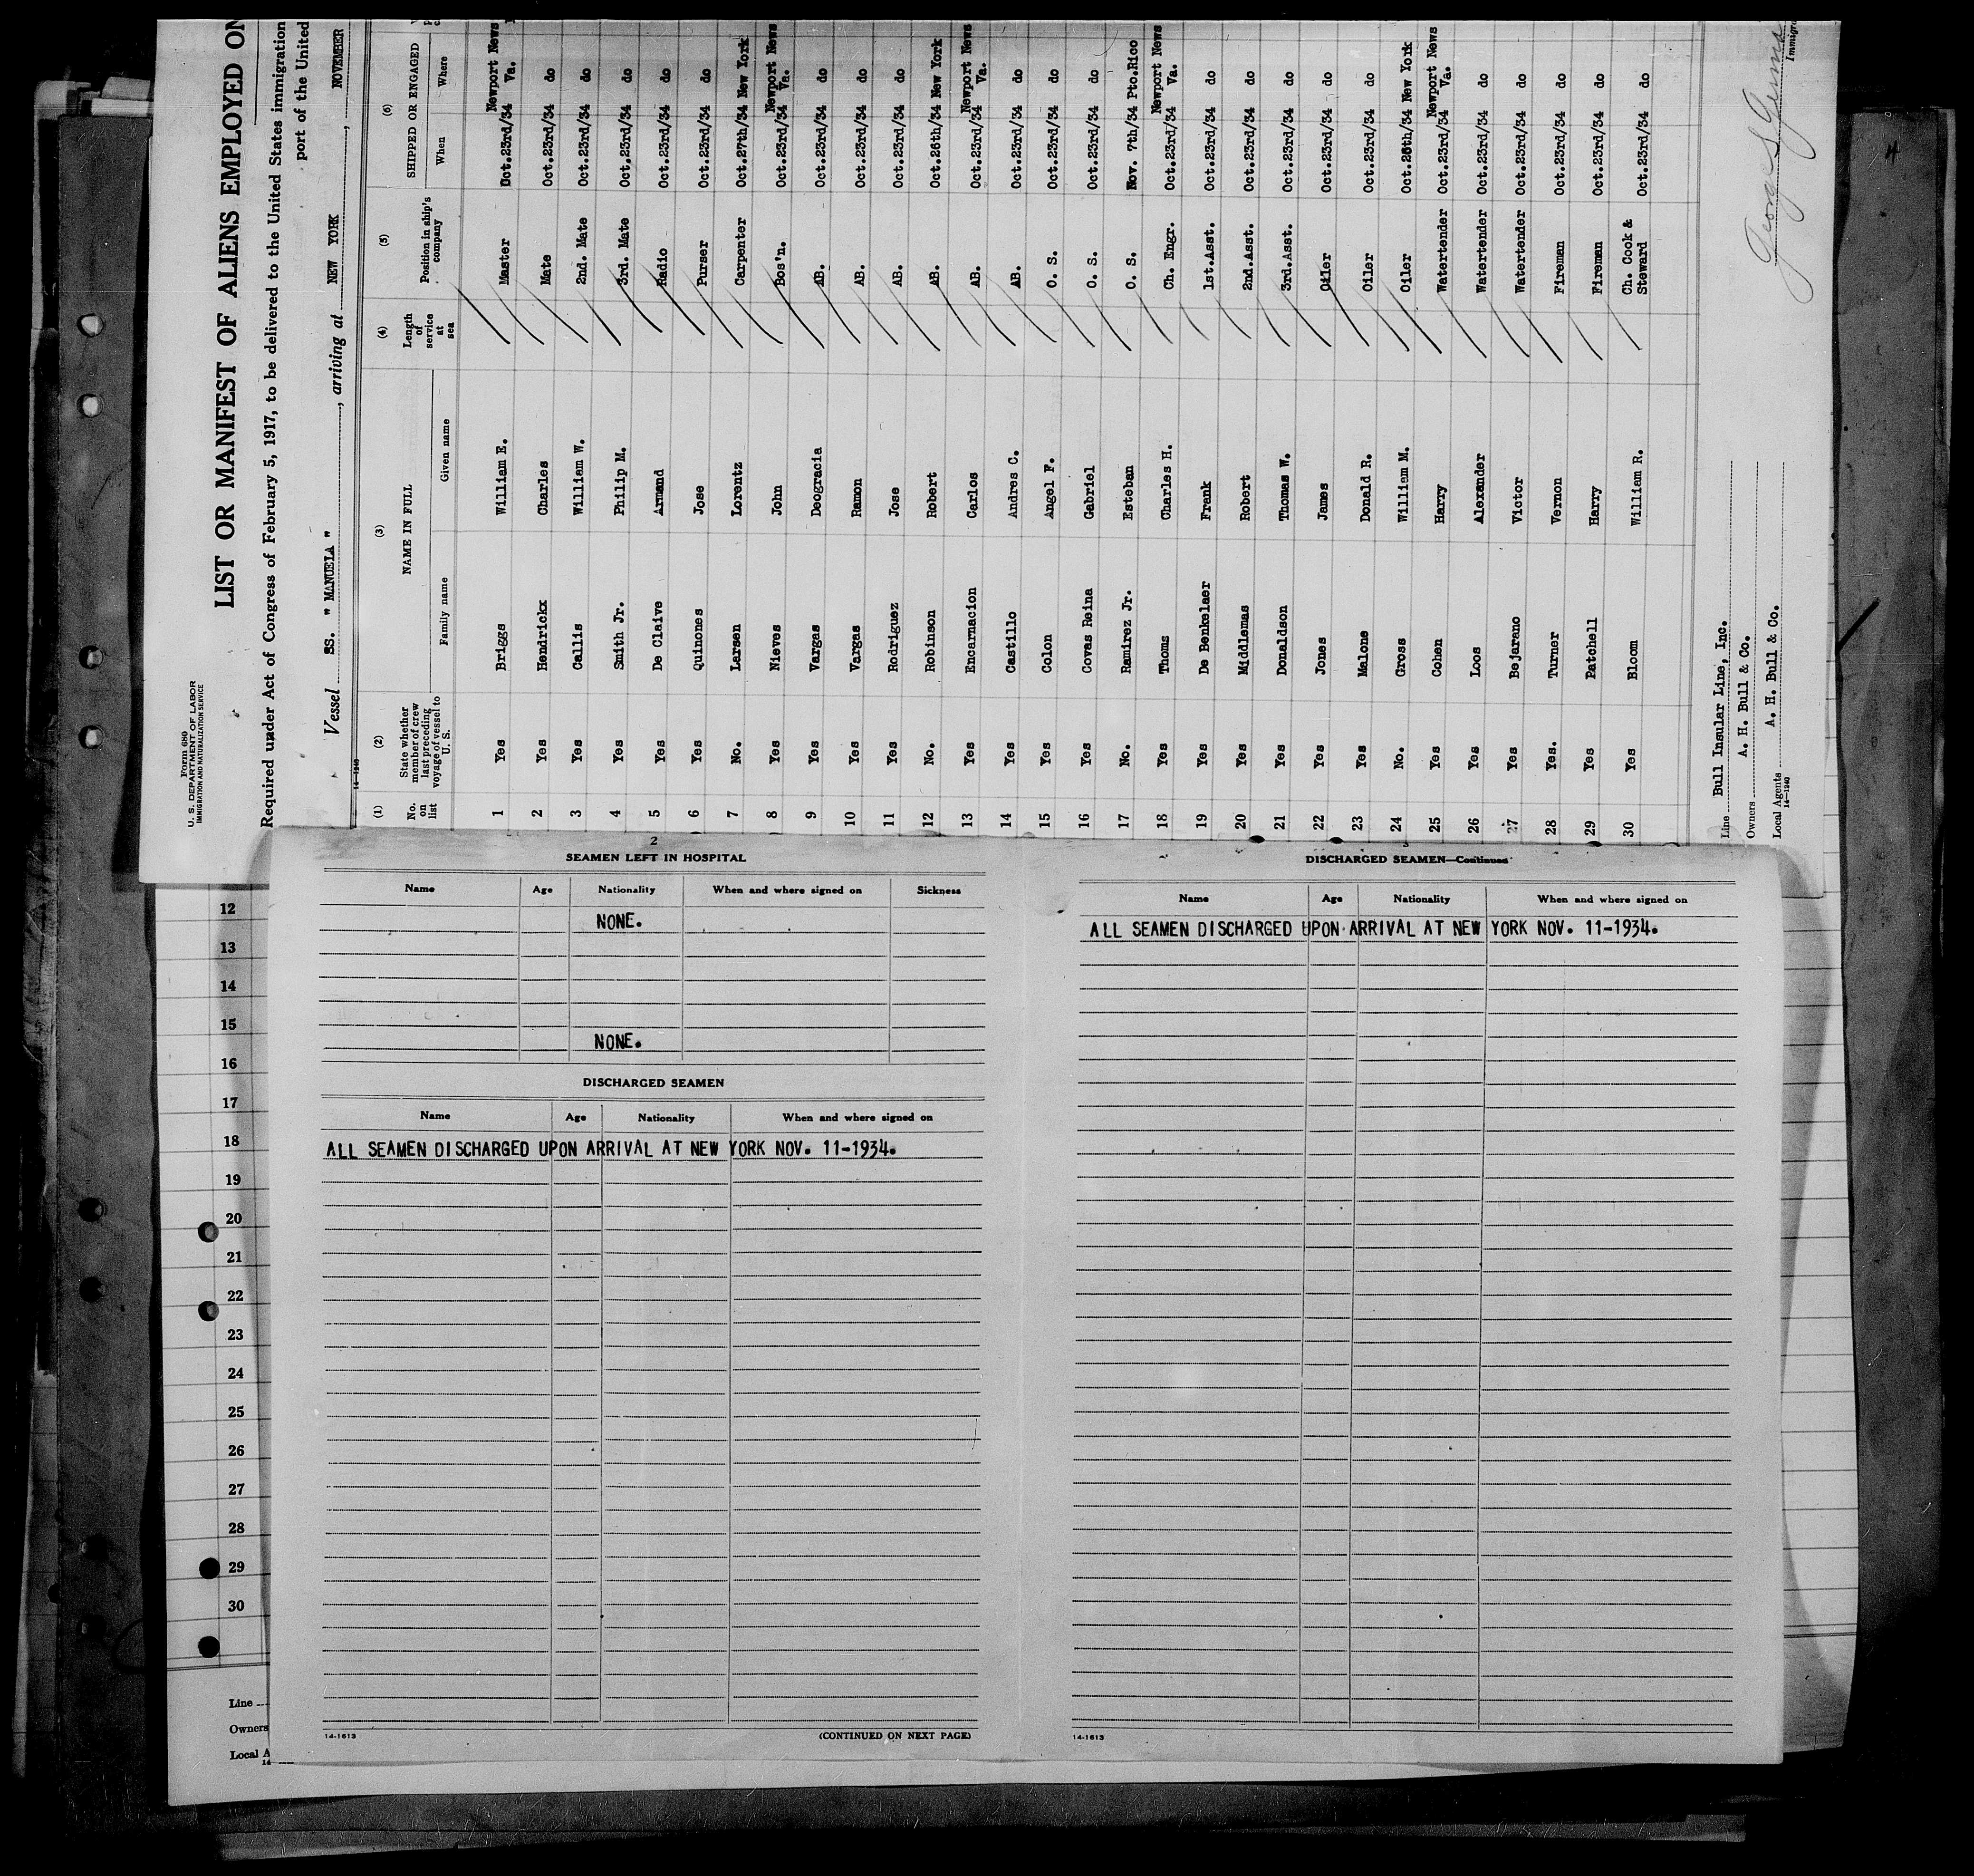 Form 680
U. S. DEPARTMENT OF LABOR
IMMIGRATION AND NATURALIZATION SERVICE
LIST OR MANIFEST OF ALIENS EMPLOYED ON
Required under Act of Congress of February 5, 1917, to be delivered to the United States immigration
port of the United
Vessel SS. " MANUELA " , arriving at NEW YORK , NOVEMBER
14-1240
(1) (2) (3) (4) (5) (6)
No. on list State whether member of crew last preceding voyage of vessel to U. S. NAME IN FULL Length of service at sea Position in ship's company SHIPPED OR ENGAGED
Family name Given name When Where
1 Yes Briggs William E. Master Oct.23rd/34 Newport News Va.
2 Yes Hendrickx Charles Mate Oct.23rd/34 do
3 Yes Callis William W. 2nd. Mate Oct.23rd/34 do
4 Yes Smith Jr. Philip M. 3rd. Mate Oct.23rd/34 do
5 Yes De Claive Armand Radio Oct.23rd/34 do
6 Yes Quinones Jose Purser Oct.23rd/34 do
7 No. Larsen Lorentz Carpenter Oct.27th/34 New York
8 Yes Nieves John Bos'n. Oct.23rd/34 Newport News Va.
9 Yes Vargas Deogracia AB. Oct.23rd/34 do
10 Yes Vargas Ramon AB. Oct.23rd/34 do
11 Yes Rodriguez Jose AB. Oct.23rd/34 do
12 No. Robinson Robert AB. Oct.26th/34 New York
13 Yes Encarnacion Carlos AB. Oct.23rd/34 Newport News Va.
14 Yes Castillo Andres C. AB. Oct.23rd/34 do
15 Yes Colon Angel F. O. S. Oct.23rd/34 do
16 Yes Covas Reina Gabriel O. S. Oct.23rd/34 do
17 No. Ramirez Jr. Esteban O. S. Nov. 7th/34 Pto.Rico
18 Yes Thoms Charles H. Ch. Engr. Oct.23rd/34 Newport News Va.
19 Yes De Benkelaer Frank 1st.Asst. Oct.23rd/34 do
20 Yes Middlemas Robert 2nd.Asst. Oct.23rd/34 do
21 Yes Donaldson Thomas W. 3rd.Asst. Oct.23rd/34 do
22 Yes Jones James Oiler Oct.23rd/34 do
23 Yes Malone Donald R. Oiler Oct.23rd/34 do
24 No. Gross William M. Oiler Oct.26th/34 New York
25 Yes Cohen Harry Watertender Oct.23rd/34 Newport News Va.
26 Yes Loos Alexander Watertender Oct.23rd/34 do
27 Yes Bejarano Victor Watertender Oct.23rd/34 do
28 Yes. Turner Vernon Fireman Oct.23rd/34 do
29 Yes Patchell Harry Fireman Oct.23rd/34 do
30 Yes Bloom William R. Ch. Cook & Steward Oct.23rd/34 do
Line Bull Insular Line, Inc.
Owners A. H. Bull & Co.
Local Agents A. H. Bull & Co.
14-1240
2
SEAMEN LEFT IN HOSPITAL
Name Age Nationality When and where signed on Sickness
NONE.
NONE.
DISCHARGED SEAMEN
Name Age Nationality When and where signed on
ALL SEAMEN DISCHARGED UPON ARRIVAL AT NEW YORK NOV. 11-1934.
14-1613 (CONTINUED ON NEXT PAGE)
3
DISCHARGED SEAMEN—Continued
Name Age Nationality When and where signed on
ALL SEAMEN DISCHARGED UPON ARRIVAL AT NEW YORK NOV. 11-1934.
14-1613
12
13
14
15
16
17
18
19
20
21
22
23
24
25
26
27
28
29
30
Line
Owners
Local A
14
4